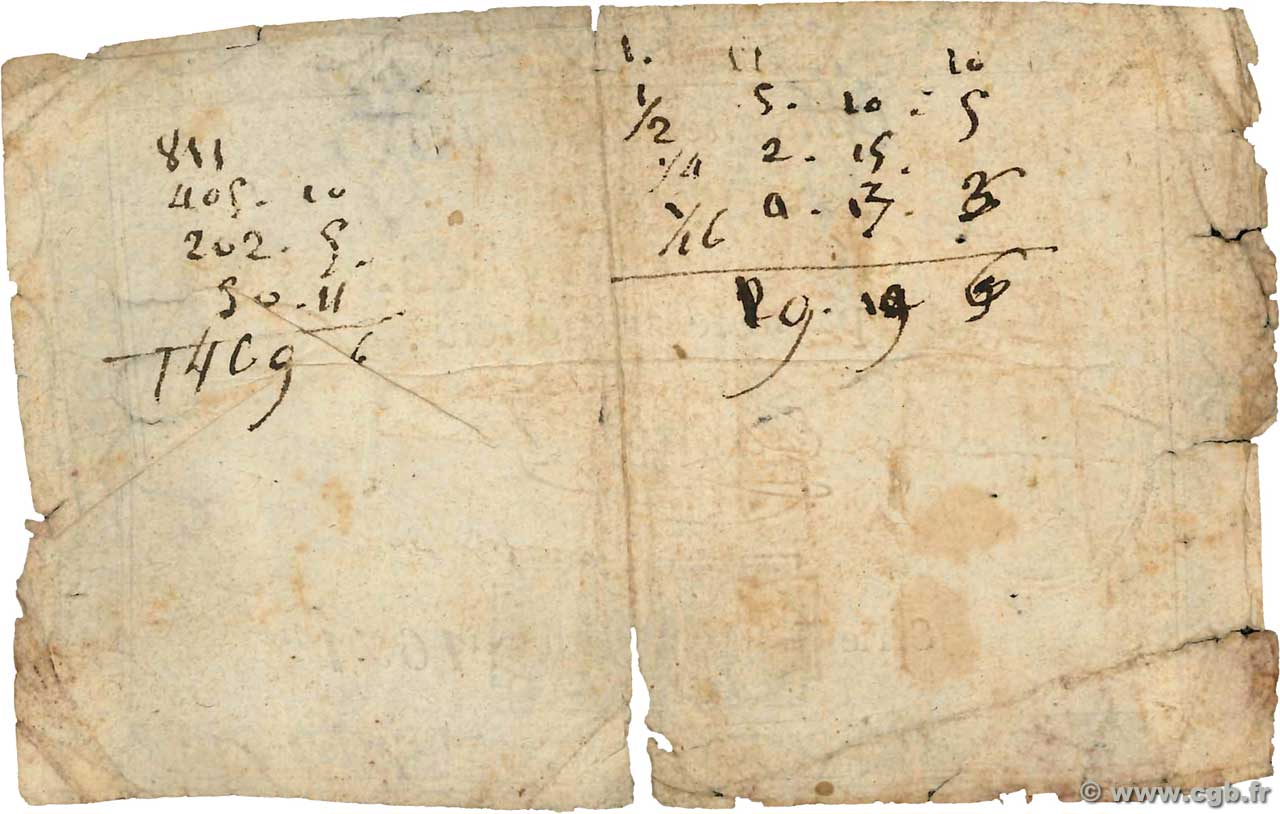 811
405 - 10
202 - 5 -
50 - 11
1469 6
1. 11 10
1/2 5 - 10 - 5
1/4 2 - 15 -
1/16 0 - 13 -
19 - 19
© www.cgb.fr